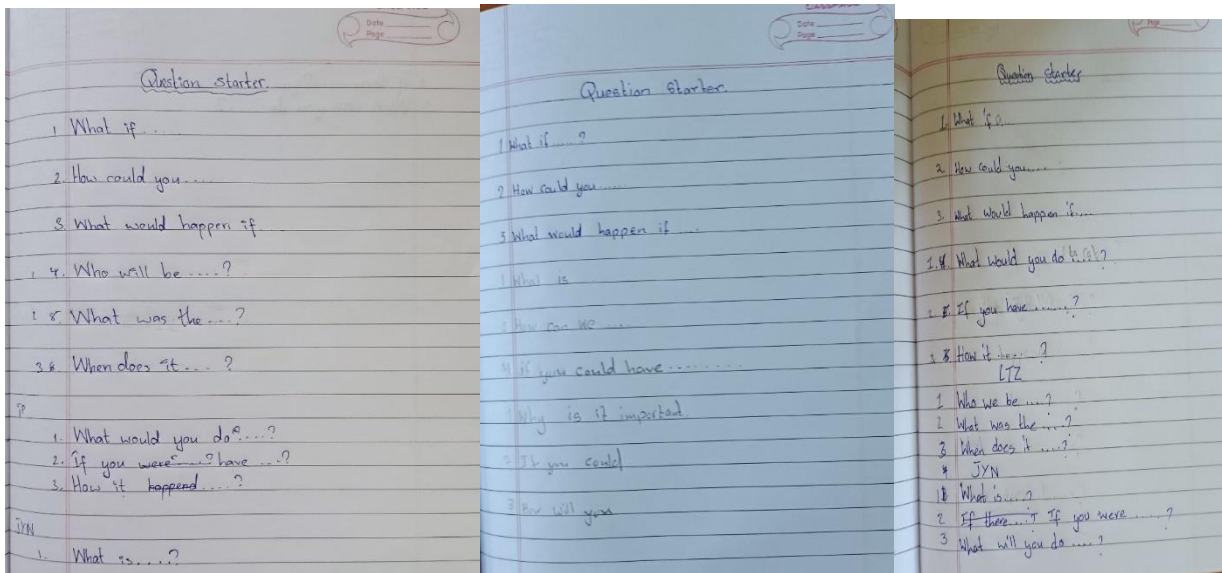 Date
Page
Question starter.
1 What if ....
2. How could you ....
3. What would happen if
1 4. Who will be ....?
2 5. What was the ....?
3 6. When does it .... ?
1. What would you do ....?
2. If you were ....? have ...?
3. How it happend ....?
JYN
1. What is ....?
Date
Page
Question Starter.
1 What if .....?
2 How could you .....
3 What would happen if ....
1 What is
2 How can we ....
if you could have .........
1 Why is it important.
2 If you could
3 How will you
Question starter
1. What if
2 How could you.....
3. What would happen if....
1. What would you do ....?
2. If you have .......?
3. How it .... ?
LTZ
1 Who we be ....?
2 What was the ....?
3 When does it .....?
JYN
1 What is....?
2 If there....? If you were ......?
3 What will you do ....?